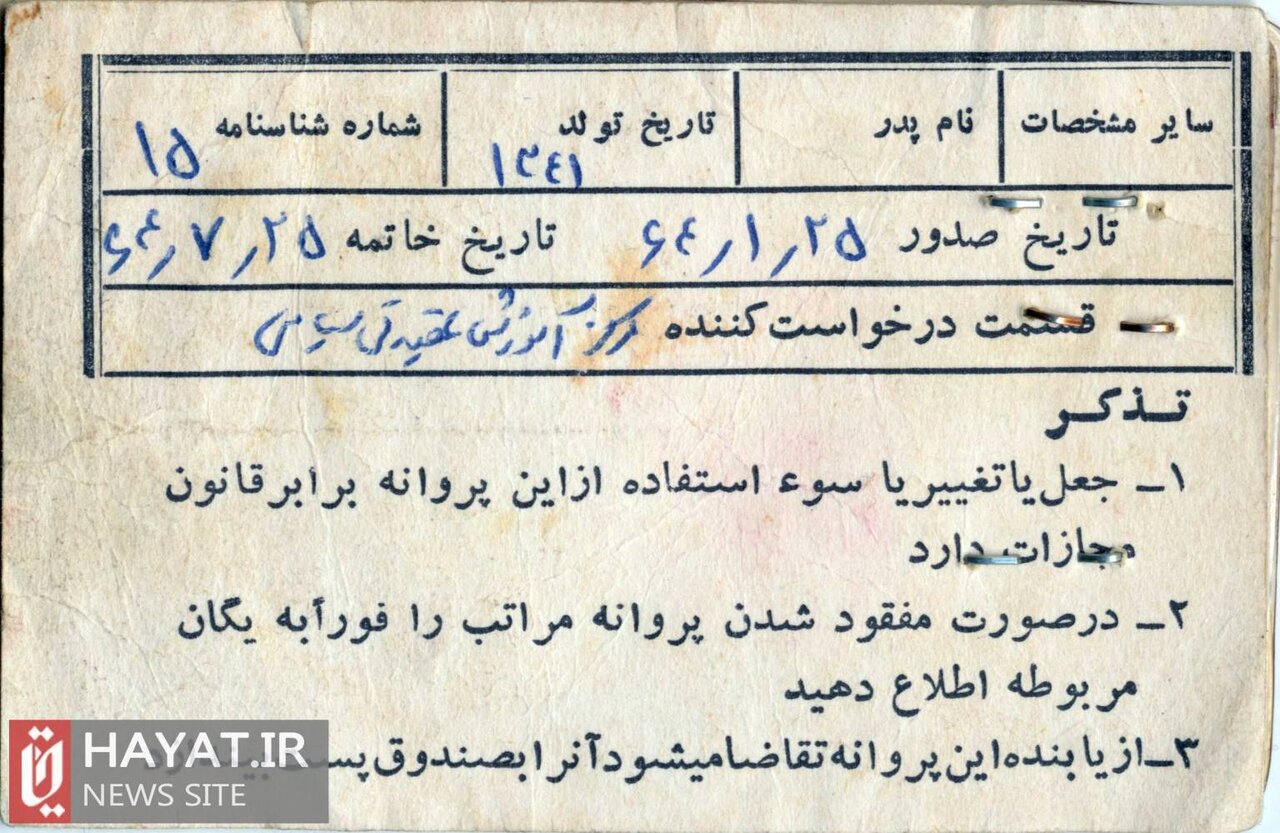 سایر مشخصات نام پدر تاریخ تولد ۱۳۴۱ شماره شناسنامه ۱۵
تاریخ صدور ۶۴/۱/۲۵ تاریخ خاتمه ۶۴/۷/۲۵
قسمت درخواست کننده مرکز آموزش عقیدتی سیاسی
تذکر
۱ـ جعل یا تغییر یا سوء استفاده از این پروانه برابر قانون
مجازات دارد
۲ـ در صورت مفقود شدن پروانه مراتب را فوراً به یگان
مربوطه اطلاع دهید
۳ـ از یابنده این پروانه تقاضا میشود آنرا بصندوق پست
HAYAT.IR
NEWS SITE